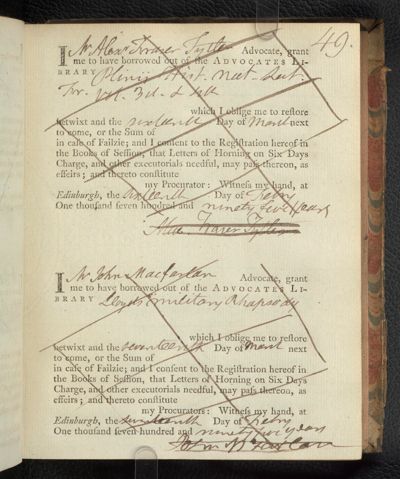 49.
I Mr Alexr Fraser Tytler Advocate, grant
me to have borrowed out of the ADVOCATES LI-
BRARY Plinii Hist. Nat. Lut.
Tr. vol. 3d. &
which I oblige me to restore
betwixt and the sixteenth Day of March next
to come, or the Sum of
in case of Failzie; and I consent to the Registration hereof in
the Books of Session, that Letters of Horning on Six Days
Charge, and other executorials needful, may pass thereon, as
effeirs; and thereto constitute
my Procurators: Witness my hand, at
Edinburgh, the sixteenth Day of Febry
One thousand seven hundred and ninety five years
Alexr Fraser Tytler
I Mr John Macfarlan Advocate, grant
me to have borrowed out of the ADVOCATES LI-
BRARY Lloyds military Rhapsody
which I oblige me to restore
betwixt and the seventeenth Day of March next
to come, or the Sum of
in case of Failzie; and I consent to the Registration hereof in
the Books of Session, that Letters of Horning on Six Days
Charge, and other executorials needful, may pass thereon, as
effeirs; and thereto constitute
my Procurators: Witness my hand, at
Edinburgh, the seventeenth Day of Febry
One thousand seven hundred and ninety five years
John Macfarlan